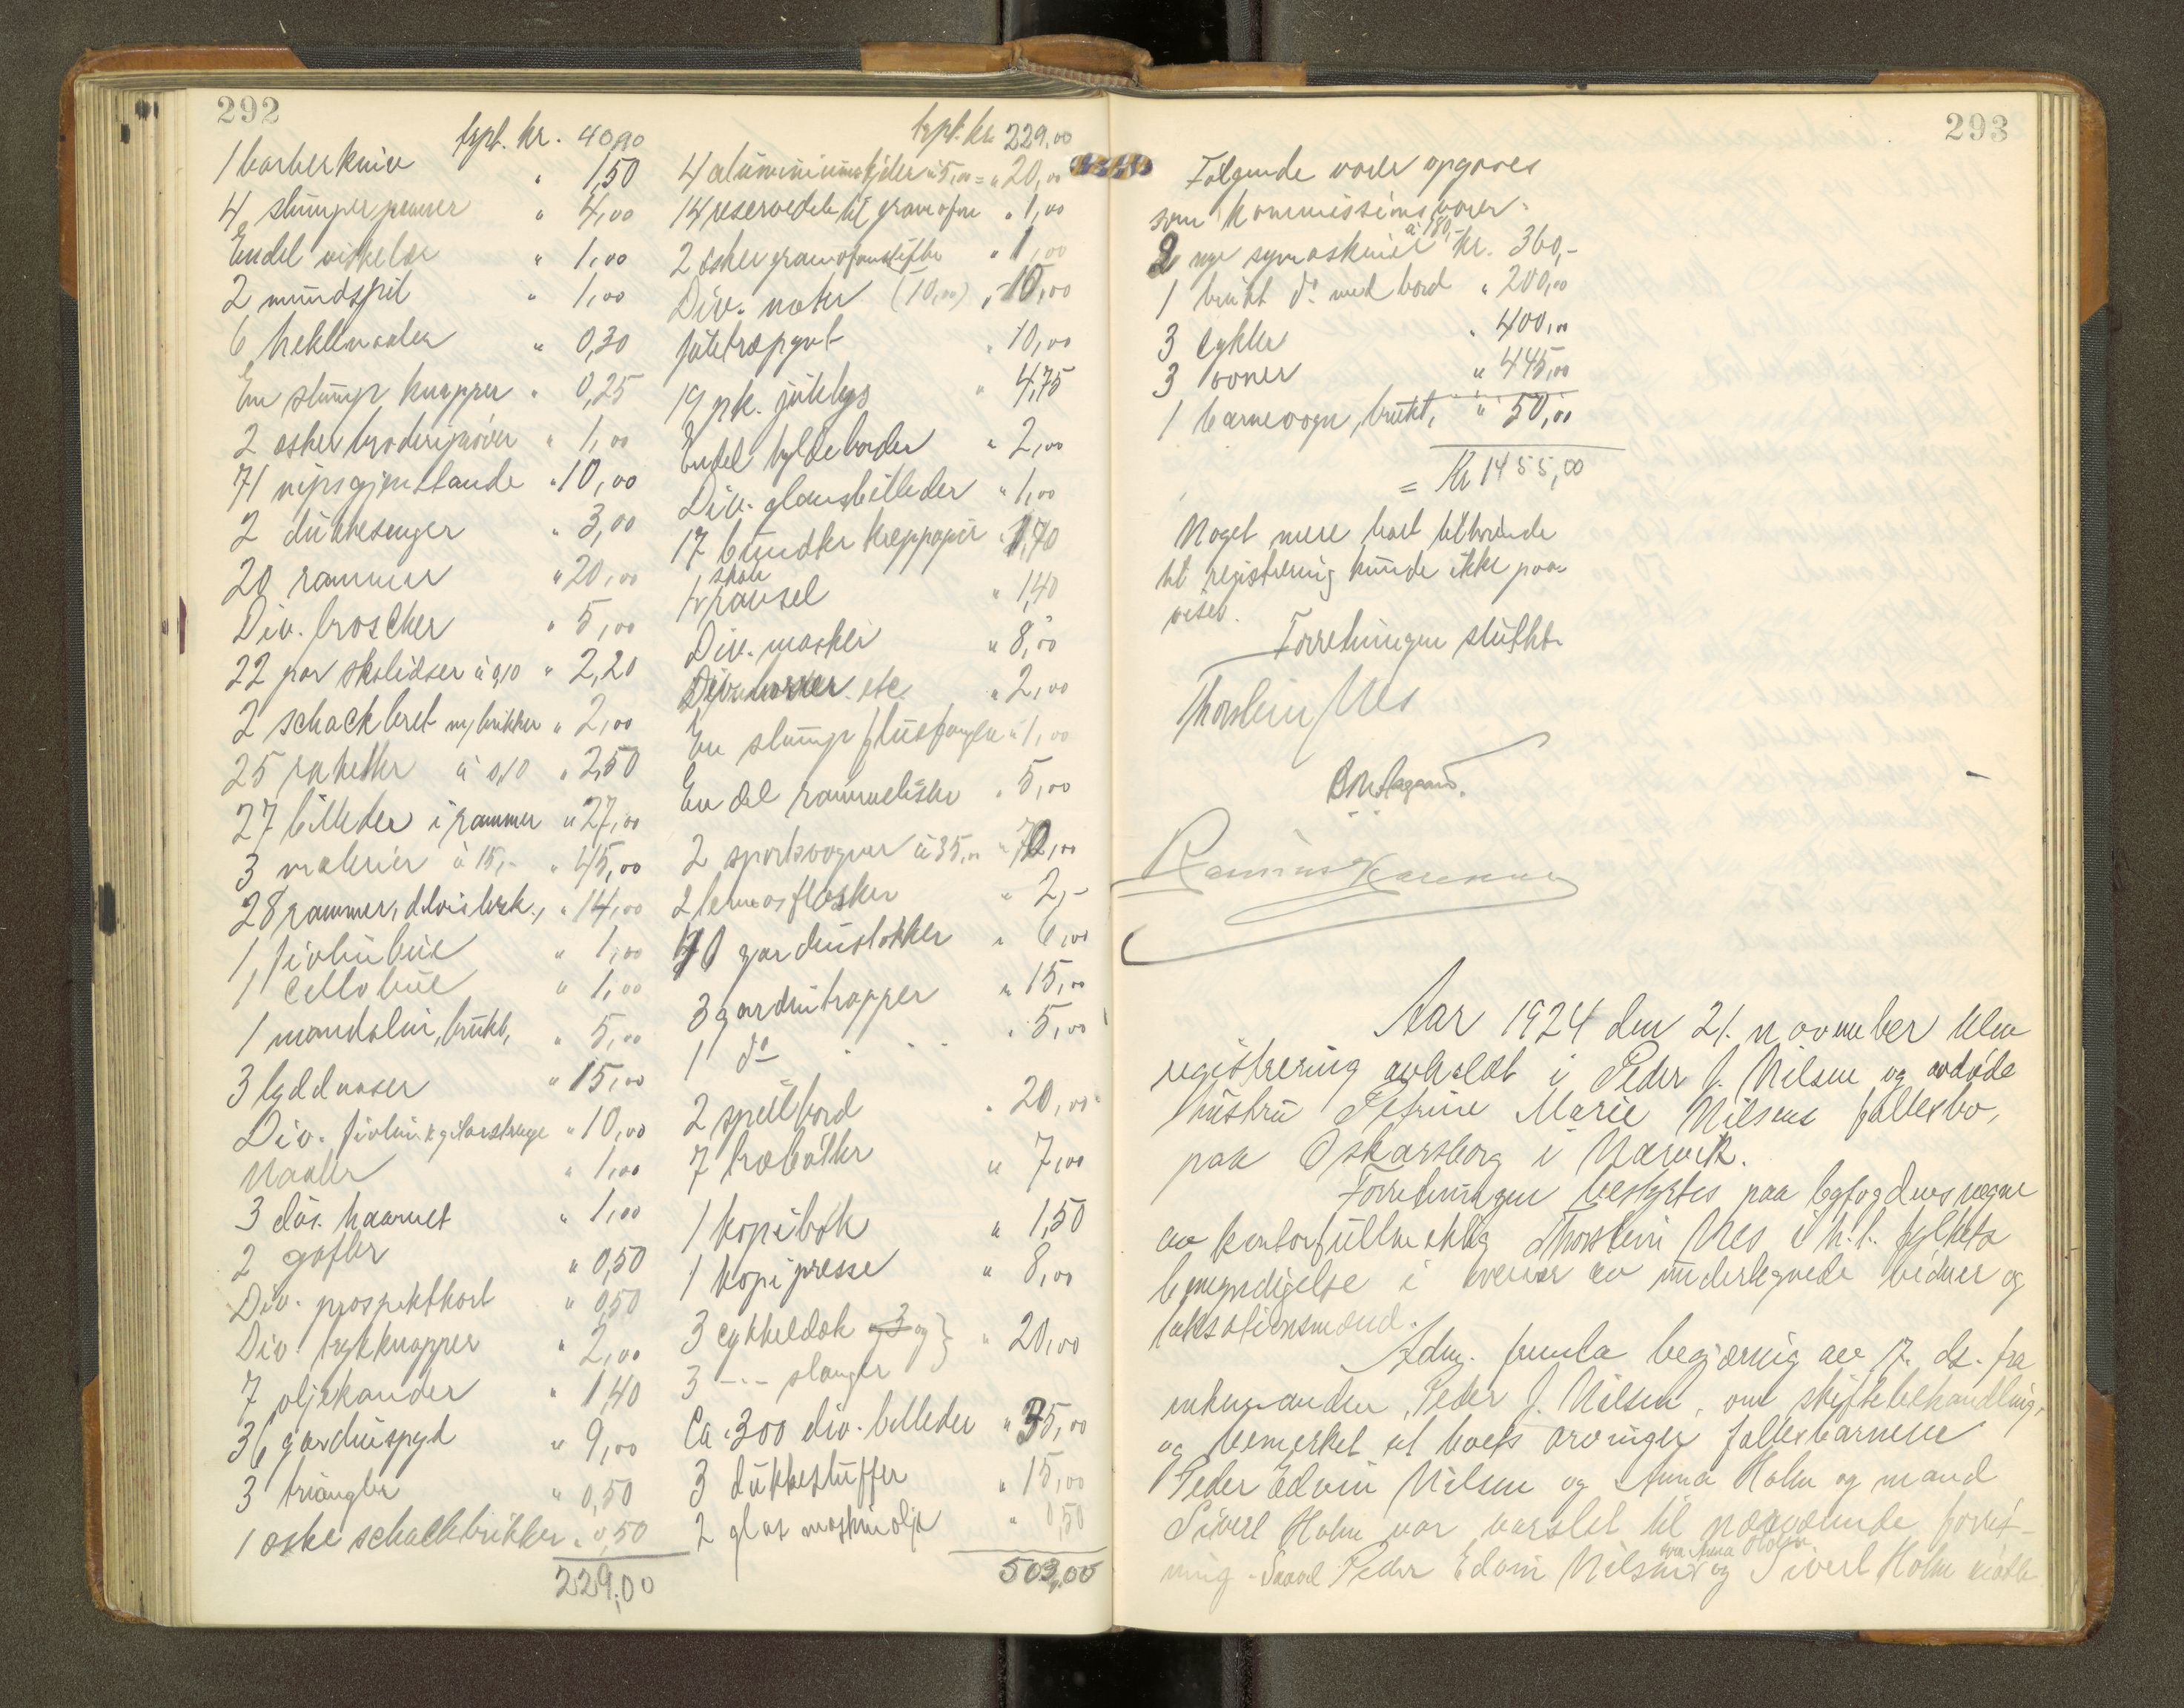 292
trpt. kr. 40,90
1 barberkniv " 1,50
4 slumper penner " 4,00
Endel viskelær " 1,00
2 mundspil " 1,00
6 heklenaaler " 0,30
En slump knapper " 0,25
2 esker broderiprøver " 1,00
71 nipsgjenstande " 10,00
2 dukkesenger " 3,00
20 rammer " 20,00
Div. broscher " 5,00
22 par skolidser à 0,10 " 2,20
2 schackbret m/ brikker " 2,00
25 raketter à 0,10 " 2,50
27 billeder i rammer " 27,00
3 malerier à 15,- " 45,00
28 rammer, delvis bræk., " 14,00
1 fiolinbue " 1,00
1 cellobue " 1,00
1 mandolin, brukt, " 5,00
3 lyddaaser " 15,00
Div. fiolin & gitarstrenge " 10,00
Naaler " 1,00
3 dus. haarnet " 1,00
2 gafler " 0,50
Div. prospektkort " 0,50
Div. trykknapper " 2,00
7 oljekander " 1,40
36 gardinspyd " 9,00
3 triangler " 0,50
1 æske schackbrikker " 0,50
229,00
trpt. kr. 229,00
4 aluminiumskjeler à 5,00 = " 20,00
14 reservedele til gramofon " 1,00
2 esker gramofonstifter " 1,00
Div. noter (10,00) " 10,00
Juletræpynt " 10,00
19 pk. julelys " 4,75
Endel hyldeborder " 2,00
Div. glansbilleder " 1,00
17 bundter kreppapir " 1,70
1 skole
ransel " 1,40
Div. masker " 8,00
etc. " 2,00
En slump fluefangere " 1,00
En del rammelister " 5,00
2 sportsvogner à 35,00 " 70,00
2 termosflasker " 2,-
10 gardinstokker " 6,00
3 gardintrapper " 15,00
1 do " 5,00
2 spillbord " 20,00
7 træbøtter " 7,00
1 kopibok " 1,50
1 kopipresse " 8,00
3 cykkeldæk og } " 20,00
3 -"- slanger
Ca. 300 div. billeder " 35,00
3 dukkestuffer " 15,00
2 glas maskinolje " 0,50
503,00
293
Følgende varer opgaves
som kommissionsvarer:
2 nye symaskiner à 180,- kr. 360,-
1 brukt do. med bord " 200,00
3 cykler " 400,00
3 ovner " 445,00
1 barnevogn, brukt, " 50,00
= Kr 1455,00
Noget mere boet tilhørende
til registrering kunde ikke paa-
vises.
Forretningen sluttet.
Thorstein Nes
Rasmus
Aar 1924 den 21. november blev
registrering avholdt i Peder J. Nilsen og avdøde
hustru Petrine Marie Nilsens fællesbo,
paa Oskarsborg i Narvik.
Forretningen bestyrtes paa byfogdens vegne
av kontorfullmektig Thorstein Nes i h.t. fylkets
bemyndigelse i overvær av undertegnede vidner og
taksationsmænd.
Adm. fremla begjæring av 17. ds. fra
enkemanden, Peder J. Nilsen, om skiftebehandling,
og bemerket at boets arvinger fællesbarnene
Peder Edvin Nilsen og Anna Holm og mand
Sivert Holm var varslet til nærværende forret-
ning. Saavel Peder Edvin Nilsen som Anna Holm og Sivert Holm møtte